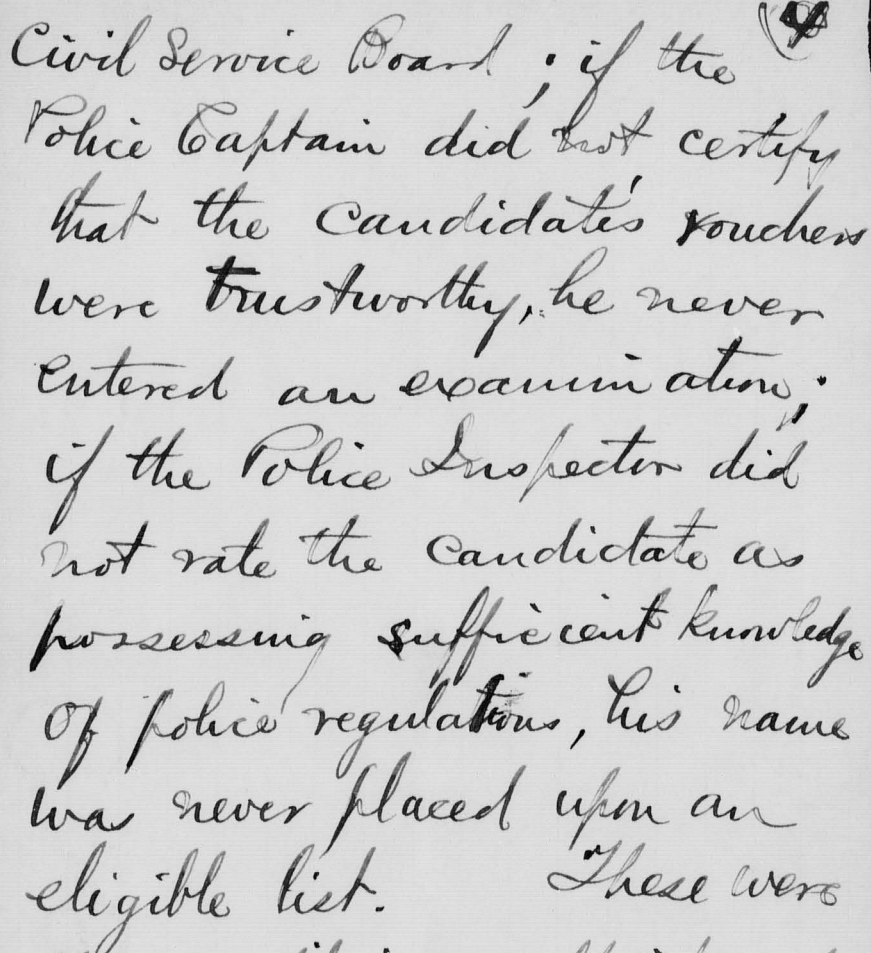 4
Civil Service Board ; if the
Police Captain did not certify
that the candidate's vouchers
were trustworthy, he never
entered an examination;
if the Police Inspector did
not rate the candidate as
possessing sufficient knowledge
of police regulations, his name
was never placed upon an
eligible list. These were